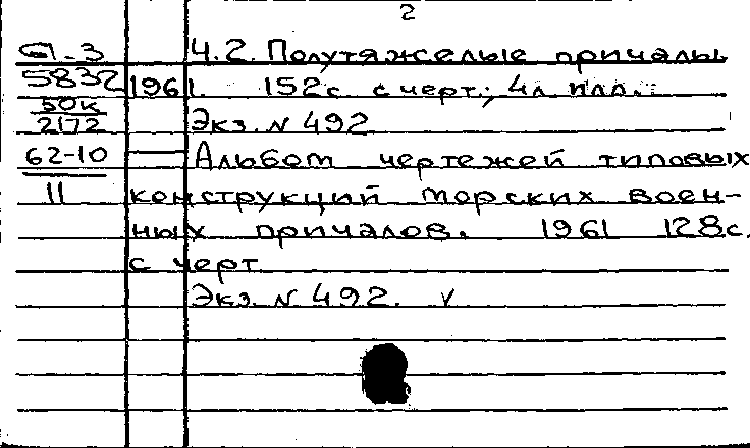 2
Сл. 3 Ч.2. Полутяжелые причалы.
5832 1961. 152с. с черт.; 4л илл.
50к
2172 Экз. N 492
62-10 — Альбом чертежей типовых
II конструкций морских воен-
ных причалов. 1961 128с.
с черт
Экз. N 492. v